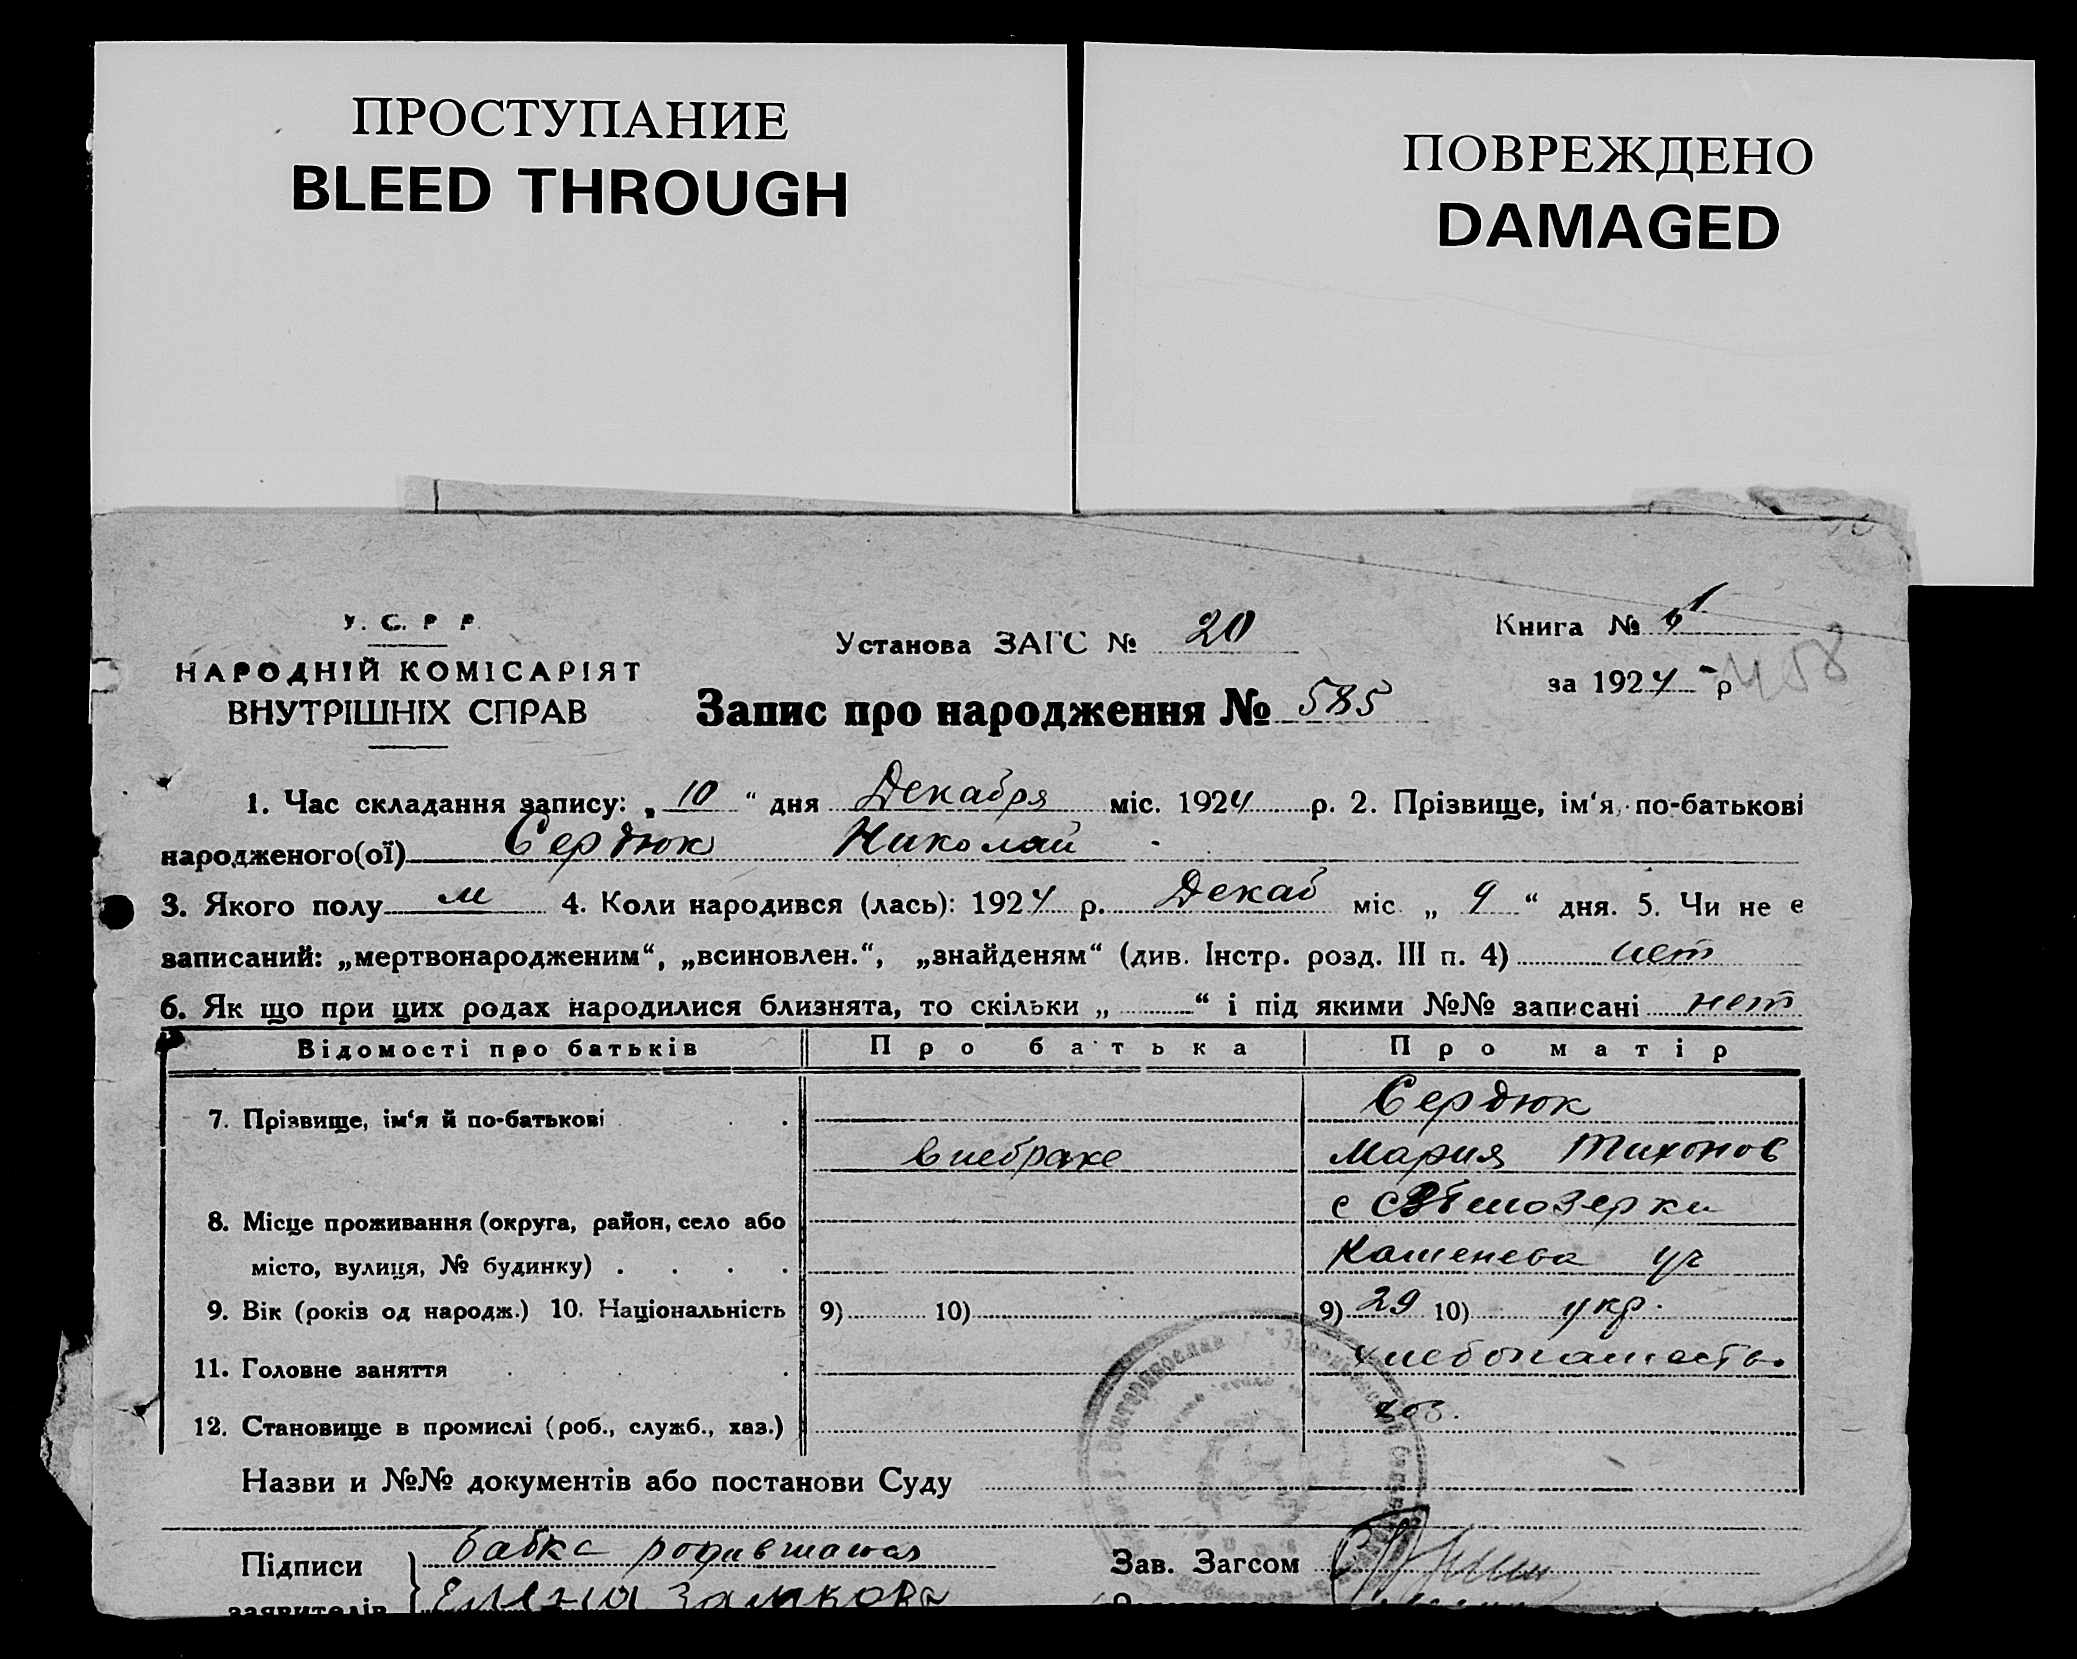 ПРОСТУПАНИЕ
BLEED THROUGH
ПОВРЕЖДЕНО
DAMAGED
У. С. Р. Р.
НАРОДНІЙ КОМІСАРІЯТ
ВНУТРІШНІХ СПРАВ
Установа ЗАГС № 20
Книга №
за 1924 р
408
Запис про народження № 585
1. Час складання запису: „10“ дня Декабря міс. 1924 р. 2. Прізвище, ім‘я, по-батькові
народженого(ої) Сердюк Николай
3. Якого полу м 4. Коли народився (лась): 1924 р. Декаб міс. „9“ дня. 5. Чи не є
записаний: „мертвонародженим“, „всиновлен.“, „знайденям“ (див. Інстр. розд. III п. 4) нет
6. Як що при цих родах народилися близнята, то скільки „ “ і під якими №№ записані нет
Відомості про батьків Про батька Про матір
Сердюк
7. Прізвище, ім‘я й по-батькові
внебраке Мария Тихонов
8. Місце проживання (округа, район, село або
місто, вулиця, № будинку)
9. Вік (років од народж.) 10. Національність 9) 10) 9) 29 10) укр.
11. Головне заняття
12. Становище в промислі (роб., служб., хаз.) хоз.
Назви и №№ документів або постанови Суду
Підписи бабка Зав. Загсом
заявителів Елена Замкова